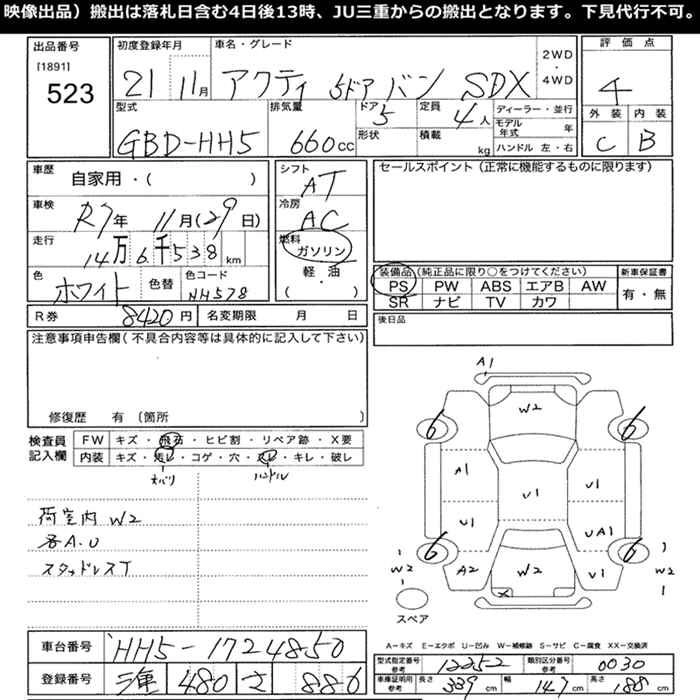 映像出品）搬出は落札日含む4日後13時、JU三重からの搬出となります。下見代行不可。
出品番号
[1891]
523
初度登録年月
21 11月
車名・グレード
アクティ 5ドア バン SDX
2WD
・
4WD
評価点
4
型式
GBD-HH5
排気量
660cc
ドア 5
形状
定員 4人
積載 kg
ディーラー・並行
モデル年式 年
ハンドル 左・右
外装 内装
C B
車歴 自家用・( )
シフト AT
車検 R7年 11月(29日)
冷房 AC
走行 14万6千538km
燃料 ガソリン
軽・油
( )
色 ホワイト 色替 色コード NH578
R券 8420円 名変期限 月 日
セールスポイント（正常に機能するものに限ります）
装備品（純正品に限り○をつけてください）
PS PW ABS エアB AW
SR ナビ TV カワ
新車保証書
有・無
後日品
注意事項申告欄（不具合内容等は具体的に記入して下さい）
修復歴 有（箇所 ）
検査員記入欄
FW キズ・飛石・ヒビ割・リペア跡・X要
内装 キズ・汚レ・コゲ・穴・スレ・キレ・破レ
ハンドル
荷室内 W2
各A.U
スタッドレスT
A1
W2
6 6
A1 U1 U1
U1 UA1
6 6
W2 A2 W2 U1 W2
X
スペア
A=キズ E=エクボ U=凹み W=補修跡 S=サビ C=腐食 XX=交換済
車台番号 HH5-1724850
登録番号 三重 480 さ 886
型式指定番号 参考 12252 類別区分番号 参考 0030
車庫証明用 参考 長さ 339cm 幅 147cm 高さ 188cm